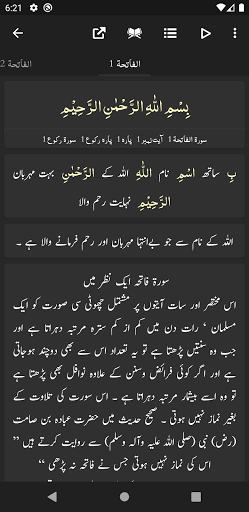 6:21
الفاتحة 1
الفاتحة 2
بِسْمِ اللّٰهِ الرَّحْمٰنِ الرَّحِيْمِ
سورة الفاتحة 1 آیت نمبر 1 پارہ 1 پارہ رکوع 1 سورة رکوع 1
بِ ساتھ اسْمِ نام اللّٰهِ اللہ کے الرَّحْمٰنِ بہت مہربان
الرَّحِيْمِ نہایت رحم والا
اللہ کے نام سے جو بےانتہا مہربان اور رحم فرمانے والا ہے ۔
سورة فاتحہ ایک نظر میں
اس مختصر اور سات آیتوں پر مشتمل چھوٹی سی صورت کو ایک
مسلمان ‘ رات دن میں کم از کم سترہ مرتبہ دہراتا ہے اور
جب وہ سنتیں پڑھتا ہے تو یہ تعداد اس سے بھی دوچند ہوجاتی
ہے اور اگر کوئی فرائض وسنن کے علاوہ نوافل بھی پڑھتا ہے
تو وہ اسے بیشمار مرتبہ دہراتا ہے ۔ اس سورت کی تلاوت کے
بغیر نماز نہیں ہوتی ۔ صحیح حدیث میں حضرت عبادہ بن صامت
(رض) نبی (صلی اللہ علیہ وآلہ وسلم) سے روایت کرتے ہیں ”
اس کی نماز نہیں ہوتی جس نے فاتحہ نہ پڑھی “